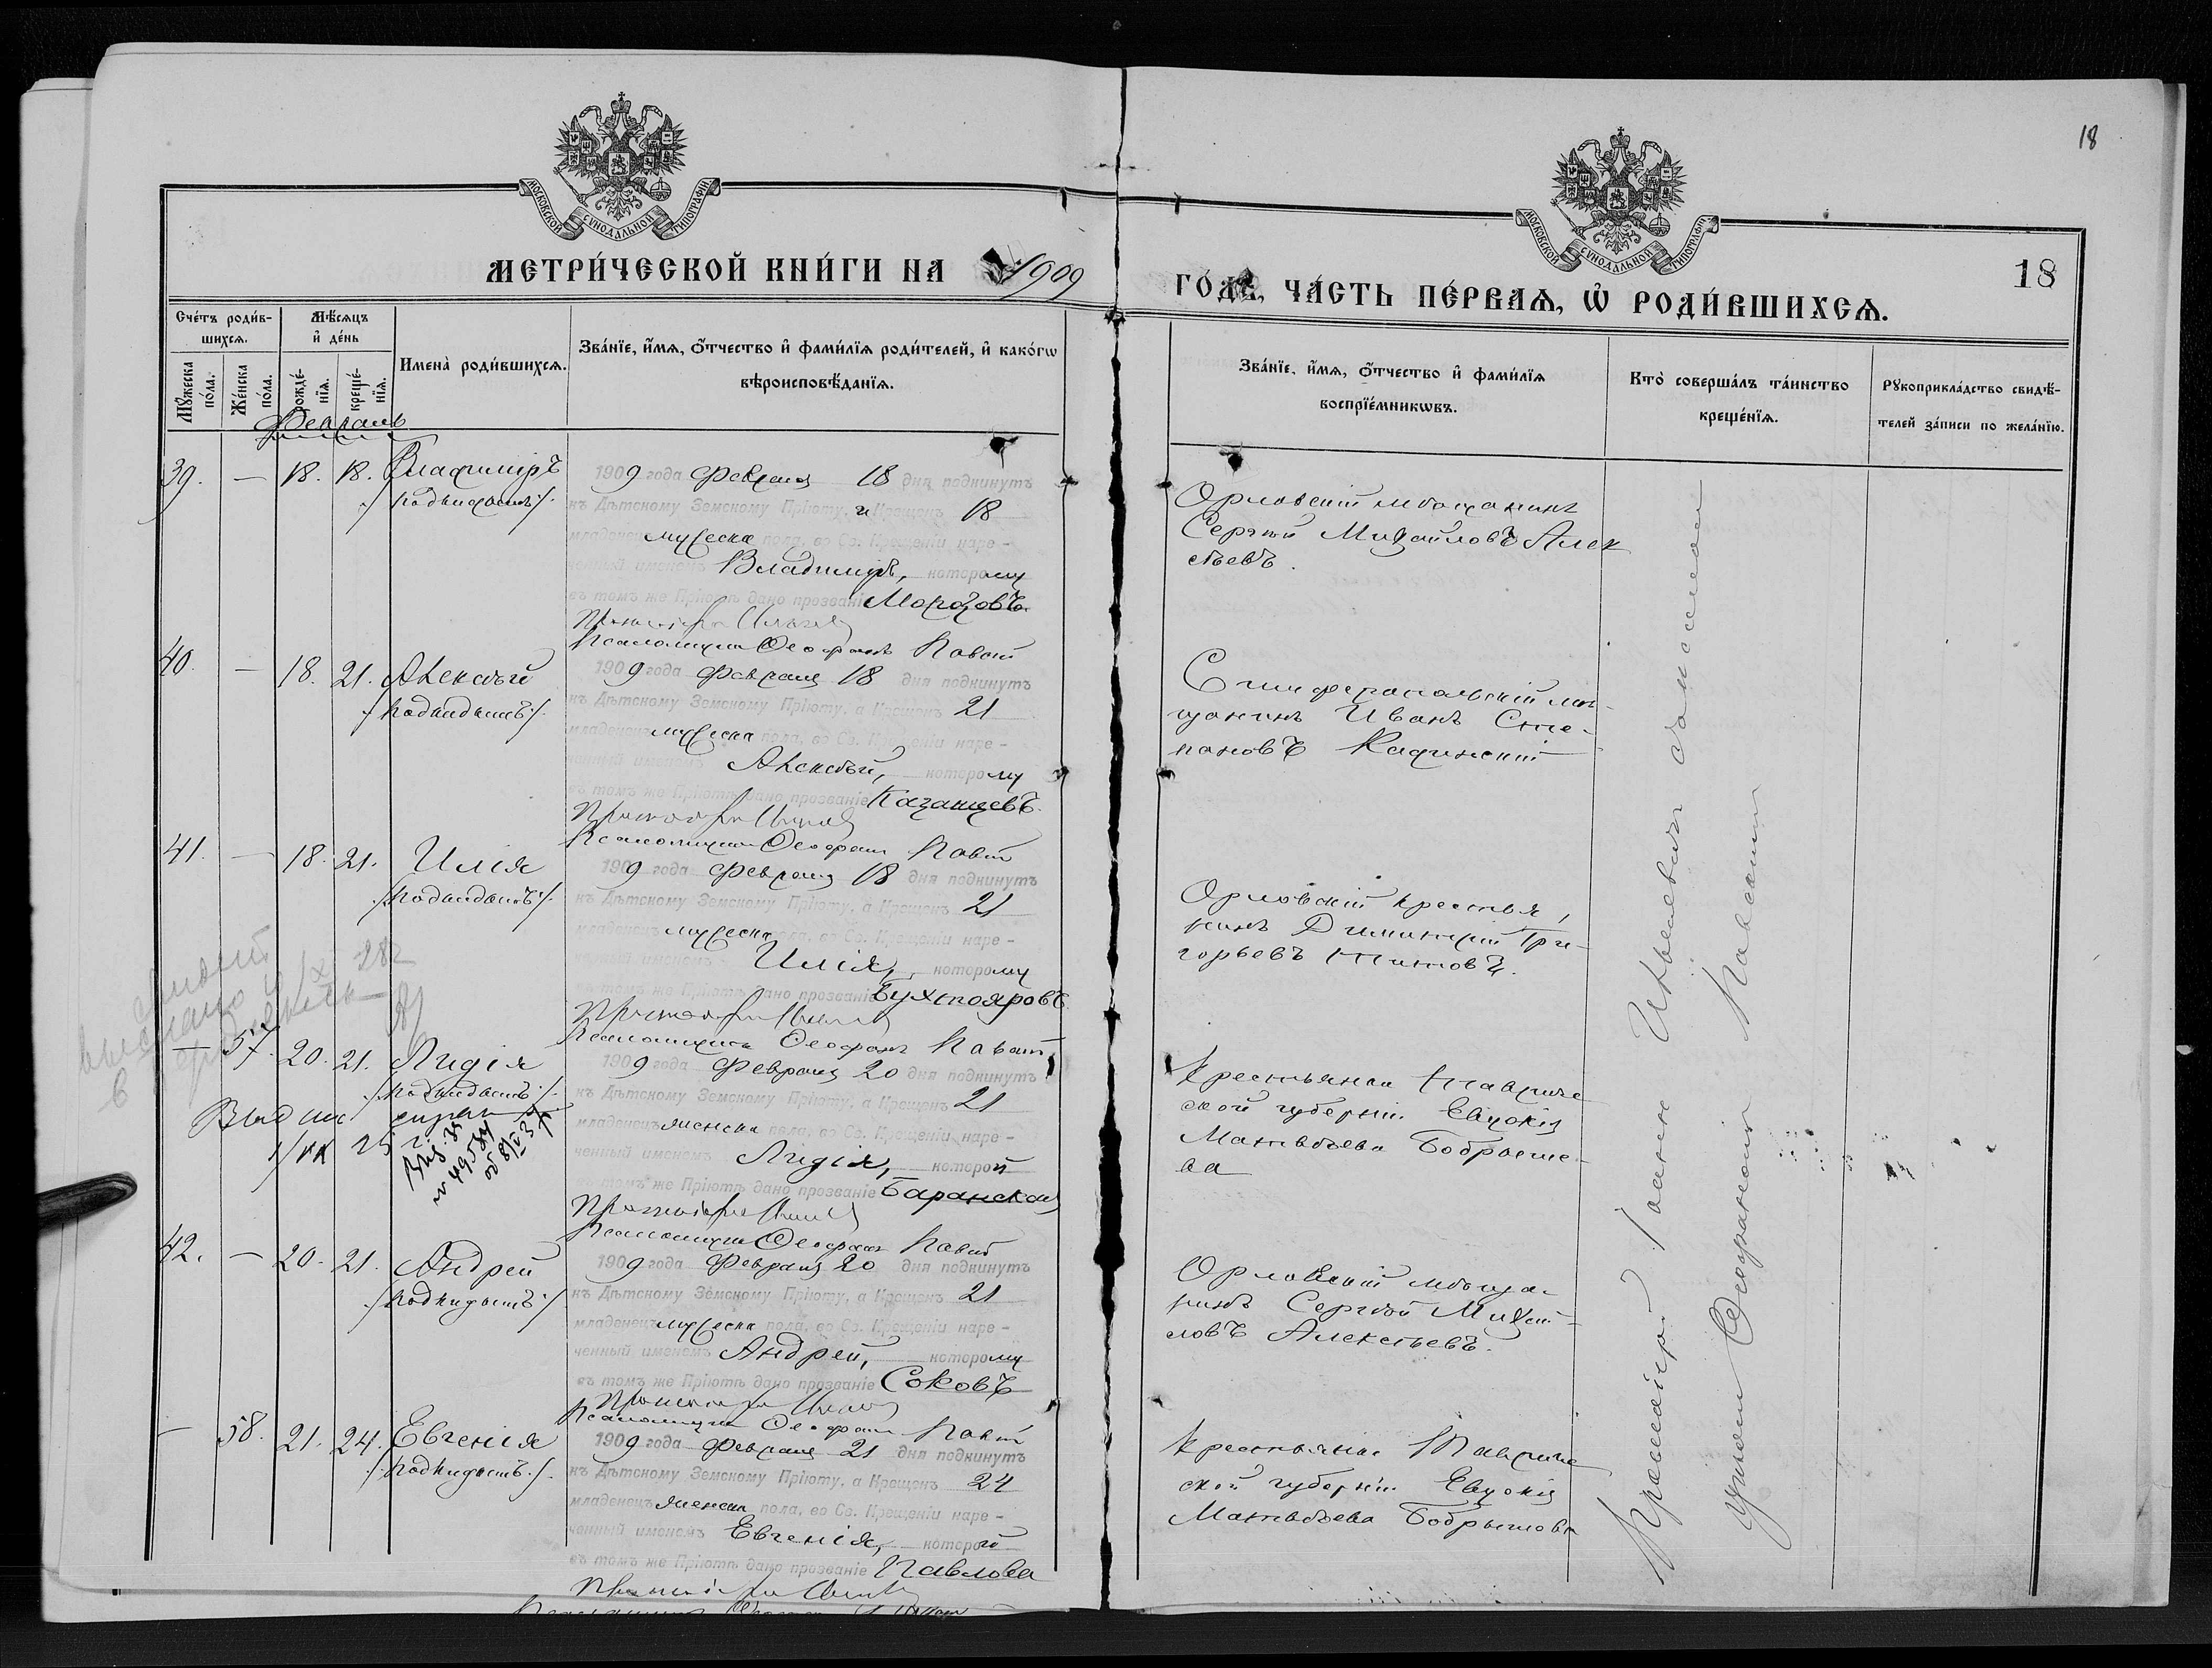 18
МОСКОВСКОЙ СѴНОДАЛЬНОЙ ТИПОГРАФІИ
МОСКОВСКОЙ СѴНОДАЛЬНОЙ ТИПОГРАФІИ
МЕТРИ́ЧЕСКОЙ КНИ́ГИ НА 1909
ГО́ДЪ, ЧА́СТЬ ПЕ́РВАѦ, Ѡ҆ РОДИ́ВШИХСѦ.
18
Сче́тъ роди́в-
шихсѧ.
Мꙋ́жеска
по́ла.
Же́нска
по́ла.
Мѣ́сѧцъ
и҆ де́нь
рожде́-
нїѧ.
креще́-
нїѧ.
Имена̀ роди́вшихсѧ.
Зва́нїе, и҆́мѧ, ѻ҆́тчество и҆ фами́лїѧ роди́телей, и҆ како́гѡ
вѣроисповѣ́данїѧ.
Зва́нїе, и҆́мѧ, ѻ҆́тчество и҆ фами́лїѧ
воспрїе́мникѡвъ.
Кто̀ соверша́лъ та́инство
креще́нїѧ.
Рꙋкоприкла́дство свидѣ́-
телей за́писи по жела́нїю.
Февраль
39. — 18. 18. Владиміръ
/подкидышъ/.
1909 года Февраля 18 дня подкинутъ
къ Дѣтскому Земскому Пріюту, и Крещенъ 18
младенецъ мужеска пола, во Св. Крещеніи наре-
ченный именемъ Владиміръ, которому
въ томъ же Пріютѣ дано прозваніе Морозовъ.
Псаломщикъ Ѳеофанъ
Орловскій мѣщанинъ
Сергѣй Михайловъ Алек
сѣевъ.
40. — 18. 21. Алексѣй
/подкидышъ/.
1909 года Февраля 18 дня подкинутъ
къ Дѣтскому Земскому Пріюту, а Крещенъ 21
младенецъ мужеска пола, во Св. Крещеніи наре-
ченный именемъ Алексѣй, которому
въ томъ же Пріютѣ дано прозваніе Казанцевъ.
Псаломщикъ Ѳеофанъ
Симферопольскій мѣ-
щанинъ Иванъ Сте-
пановъ
41. — 18. 21. Илія
/подкидышъ/.
1909 года Февраля 18 дня подкинутъ
къ Дѣтскому Земскому Пріюту, а Крещенъ 21
младенецъ мужеска пола, во Св. Крещеніи наре-
ченный именемъ Илія, которому
въ томъ же Пріютѣ дано прозваніе Бухспояровъ
Псаломщикъ Ѳеофанъ
Орловскій крестья-
нинъ Димитрій Гри-
горьевъ Титовъ.
— 57. 20. 21. Лидія
/подкидышъ/.
1909 года Февраля 20 дня подкинутъ
къ Дѣтскому Земскому Пріюту, а Крещенъ 21
младенецъ женска пола, во Св. Крещеніи наре-
ченный именемъ Лидія, которой
въ томъ же Пріютѣ дано прозваніе Баранская
Псаломщикъ Ѳеофанъ
Крестьянка Тавриче
ской губерніи Евдокія
Матвѣева Бобрыше-
ва
42. — 20. 21. Андрей
/подкидышъ/
1909 года Февраля 20 дня подкинутъ
къ Дѣтскому Земскому Пріюту, а Крещенъ 21
младенецъ мужеска пола, во Св. Крещеніи наре-
ченный именемъ Андрей, которому
въ томъ же Пріютѣ дано прозваніе Соковъ
Псаломщикъ Ѳеофанъ
Орловскій мѣща-
нинъ Сергѣй Михай-
ловъ Алексѣевъ.
— 58. 21. 24. Евгенія
/подкидышъ/.
1909 года Февраля 21 дня подкинутъ
къ Дѣтскому Земскому Пріюту, а Крещенъ 24
младенецъ женска пола, во Св. Крещеніи наре-
ченный именемъ Евгенія, которой
въ томъ же Пріютѣ дано прозваніе Павлова
Крестьянка Тавриче
ской губерніи Евдокія
Матвѣева Бобрышова